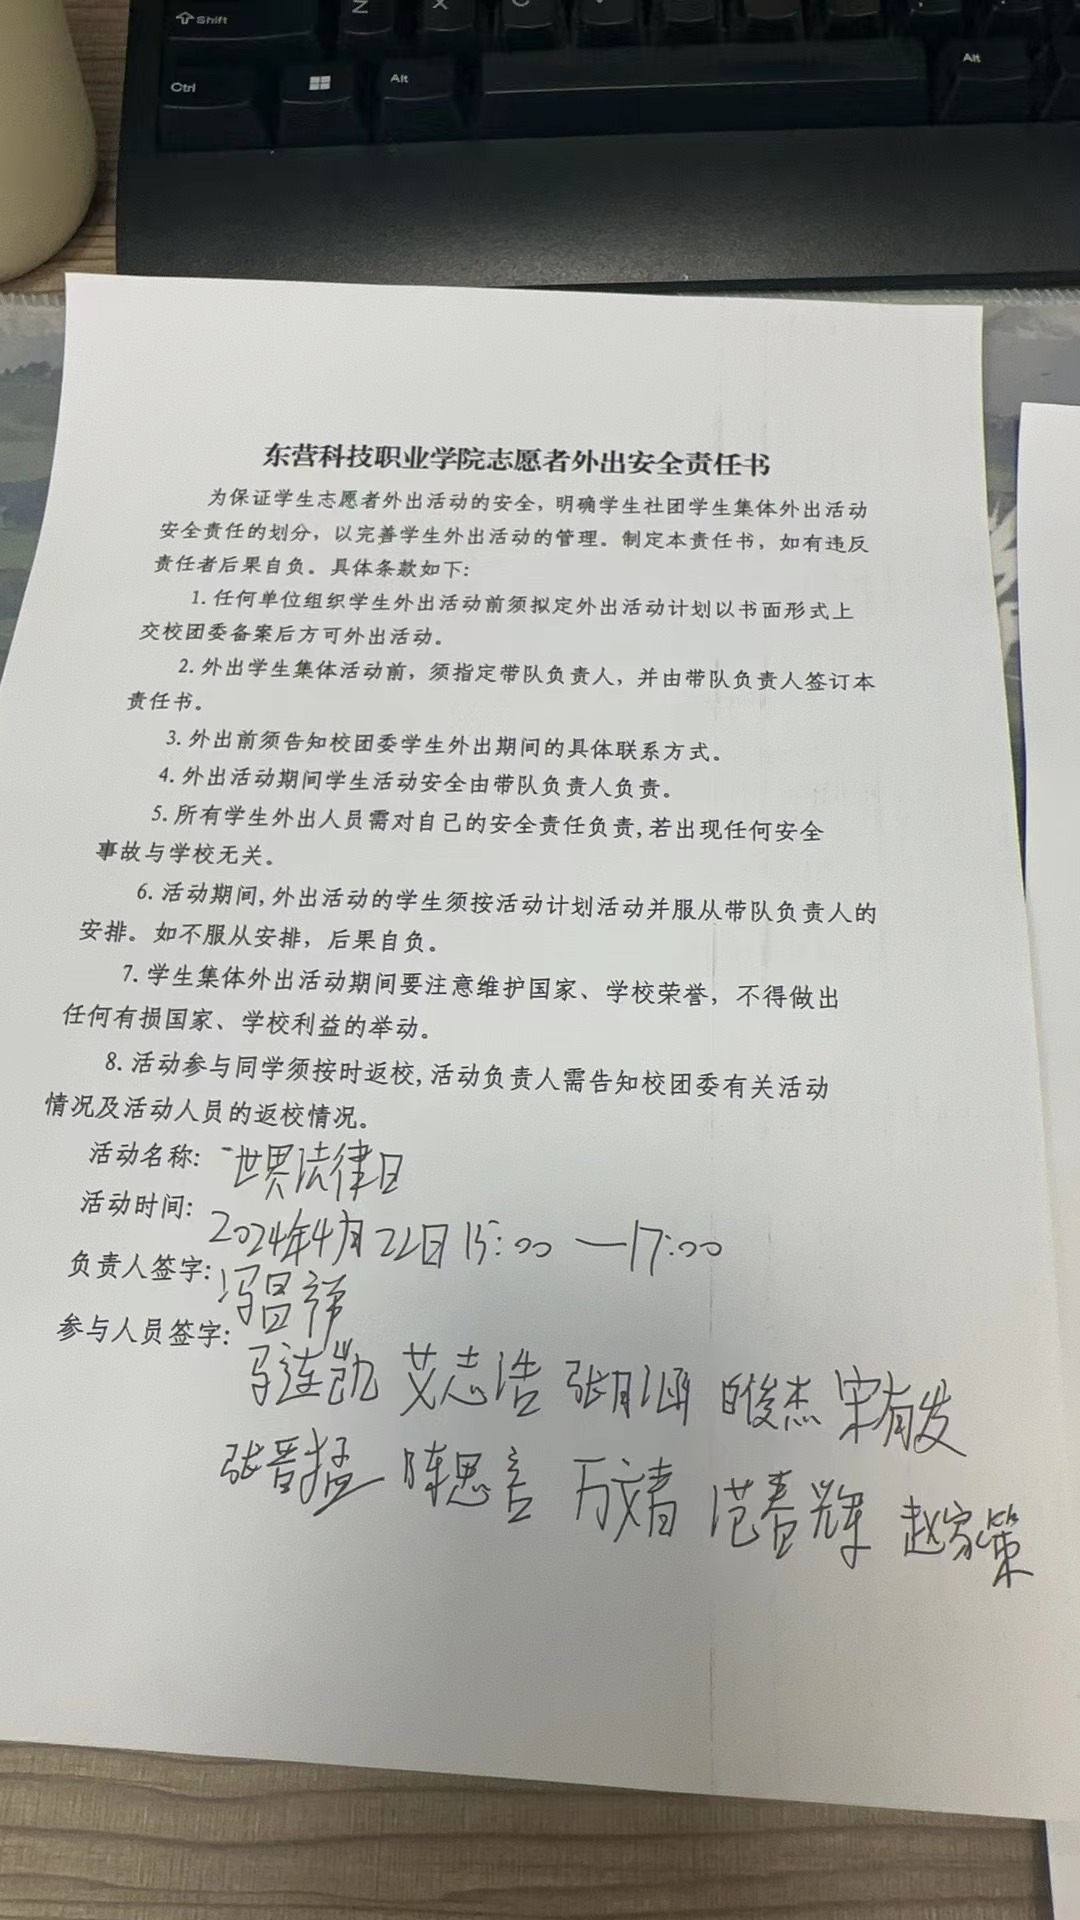 Shift
Z X C V
Ctrl Alt Alt
东营科技职业学院志愿者外出安全责任书
为保证学生志愿者外出活动的安全，明确学生社团学生集体外出活动
安全责任的划分，以完善学生外出活动的管理。制定本责任书，如有违反
责任者后果自负。具体条款如下：
1.任何单位组织学生外出活动前须拟定外出活动计划以书面形式上
交校团委备案后方可外出活动。
2.外出学生集体活动前，须指定带队负责人，并由带队负责人签订本
责任书。
3.外出前须告知校团委学生外出期间的具体联系方式。
4.外出活动期间学生活动安全由带队负责人负责。
5.所有学生外出人员需对自己的安全责任负责,若出现任何安全
事故与学校无关。
6.活动期间,外出活动的学生须按活动计划活动并服从带队负责人的
安排。如不服从安排，后果自负。
7.学生集体外出活动期间要注意维护国家、学校荣誉，不得做出
任何有损国家、学校利益的举动。
8.活动参与同学须按时返校,活动负责人需告知校团委有关活动
情况及活动人员的返校情况。
活动名称: 世界法律日
活动时间: 2024年4月22日15:00—17:00
负责人签字: 冯昌祥
参与人员签字:
马连凯 艾志浩 张月涵 白俊杰 宋有发
张晋猛 陈思言 万文青 范春辉 赵家策